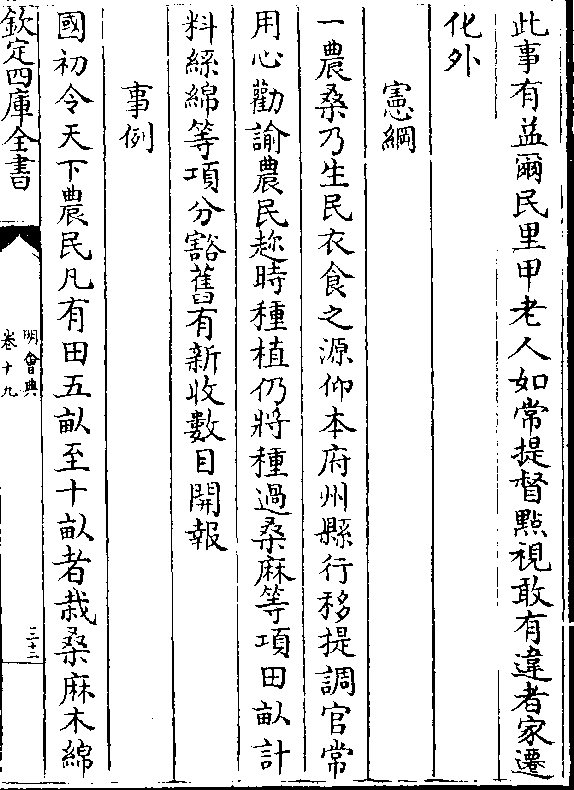 此事有益爾民里甲老人如常提督㸃視敢有違者家遷
化外
憲綱
一農桑乃生民衣食之源仰本府州縣行移提調官常
用心勸諭農民趂時種植仍將種過桑麻等項田畝計
料絲綿等項分豁舊有新收數目開報
事例
國初令天下農民凡有田五畝至十畝者栽桑麻木綿
欽定四庫全書
明會典
卷十九
三十二